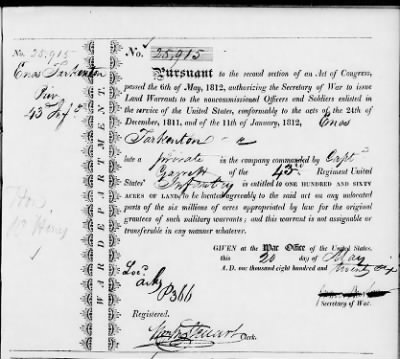 No. 25,915
No. 25,915
Enos Tarkenton
Priv
43 Inf
WAR DEPARTMENT.
Pursuant to the second section of an Act of Congress,
passed the 6th of May, 1812, authorizing the Secretary of War to issue
Land Warrants to the noncommissioned Officers and Soldiers enlisted
in the service of the United States, conformably to the acts of the 24th of
December, 1811, and of the 11th of January, 1812, Enos
Tarkenton
late a private in the company commanded by Capt
Garrett of the 43rd Regiment United
States' Infantry is entitled to ONE HUNDRED AND SIXTY
ACRES OF LAND, to be located agreeably to the said act on any unlocated
parts of the six millions of acres appropriated by law for the original
grantees of such military warrants; and this warrant is not assignable or
transferable in any manner whatever.
GIVEN at the War Office of the United States,
this 20 day of May
A. D. one thousand eight hundred and twenty six
Secretary of War.
Loc. Ark
P366
Registered.
Clerk.